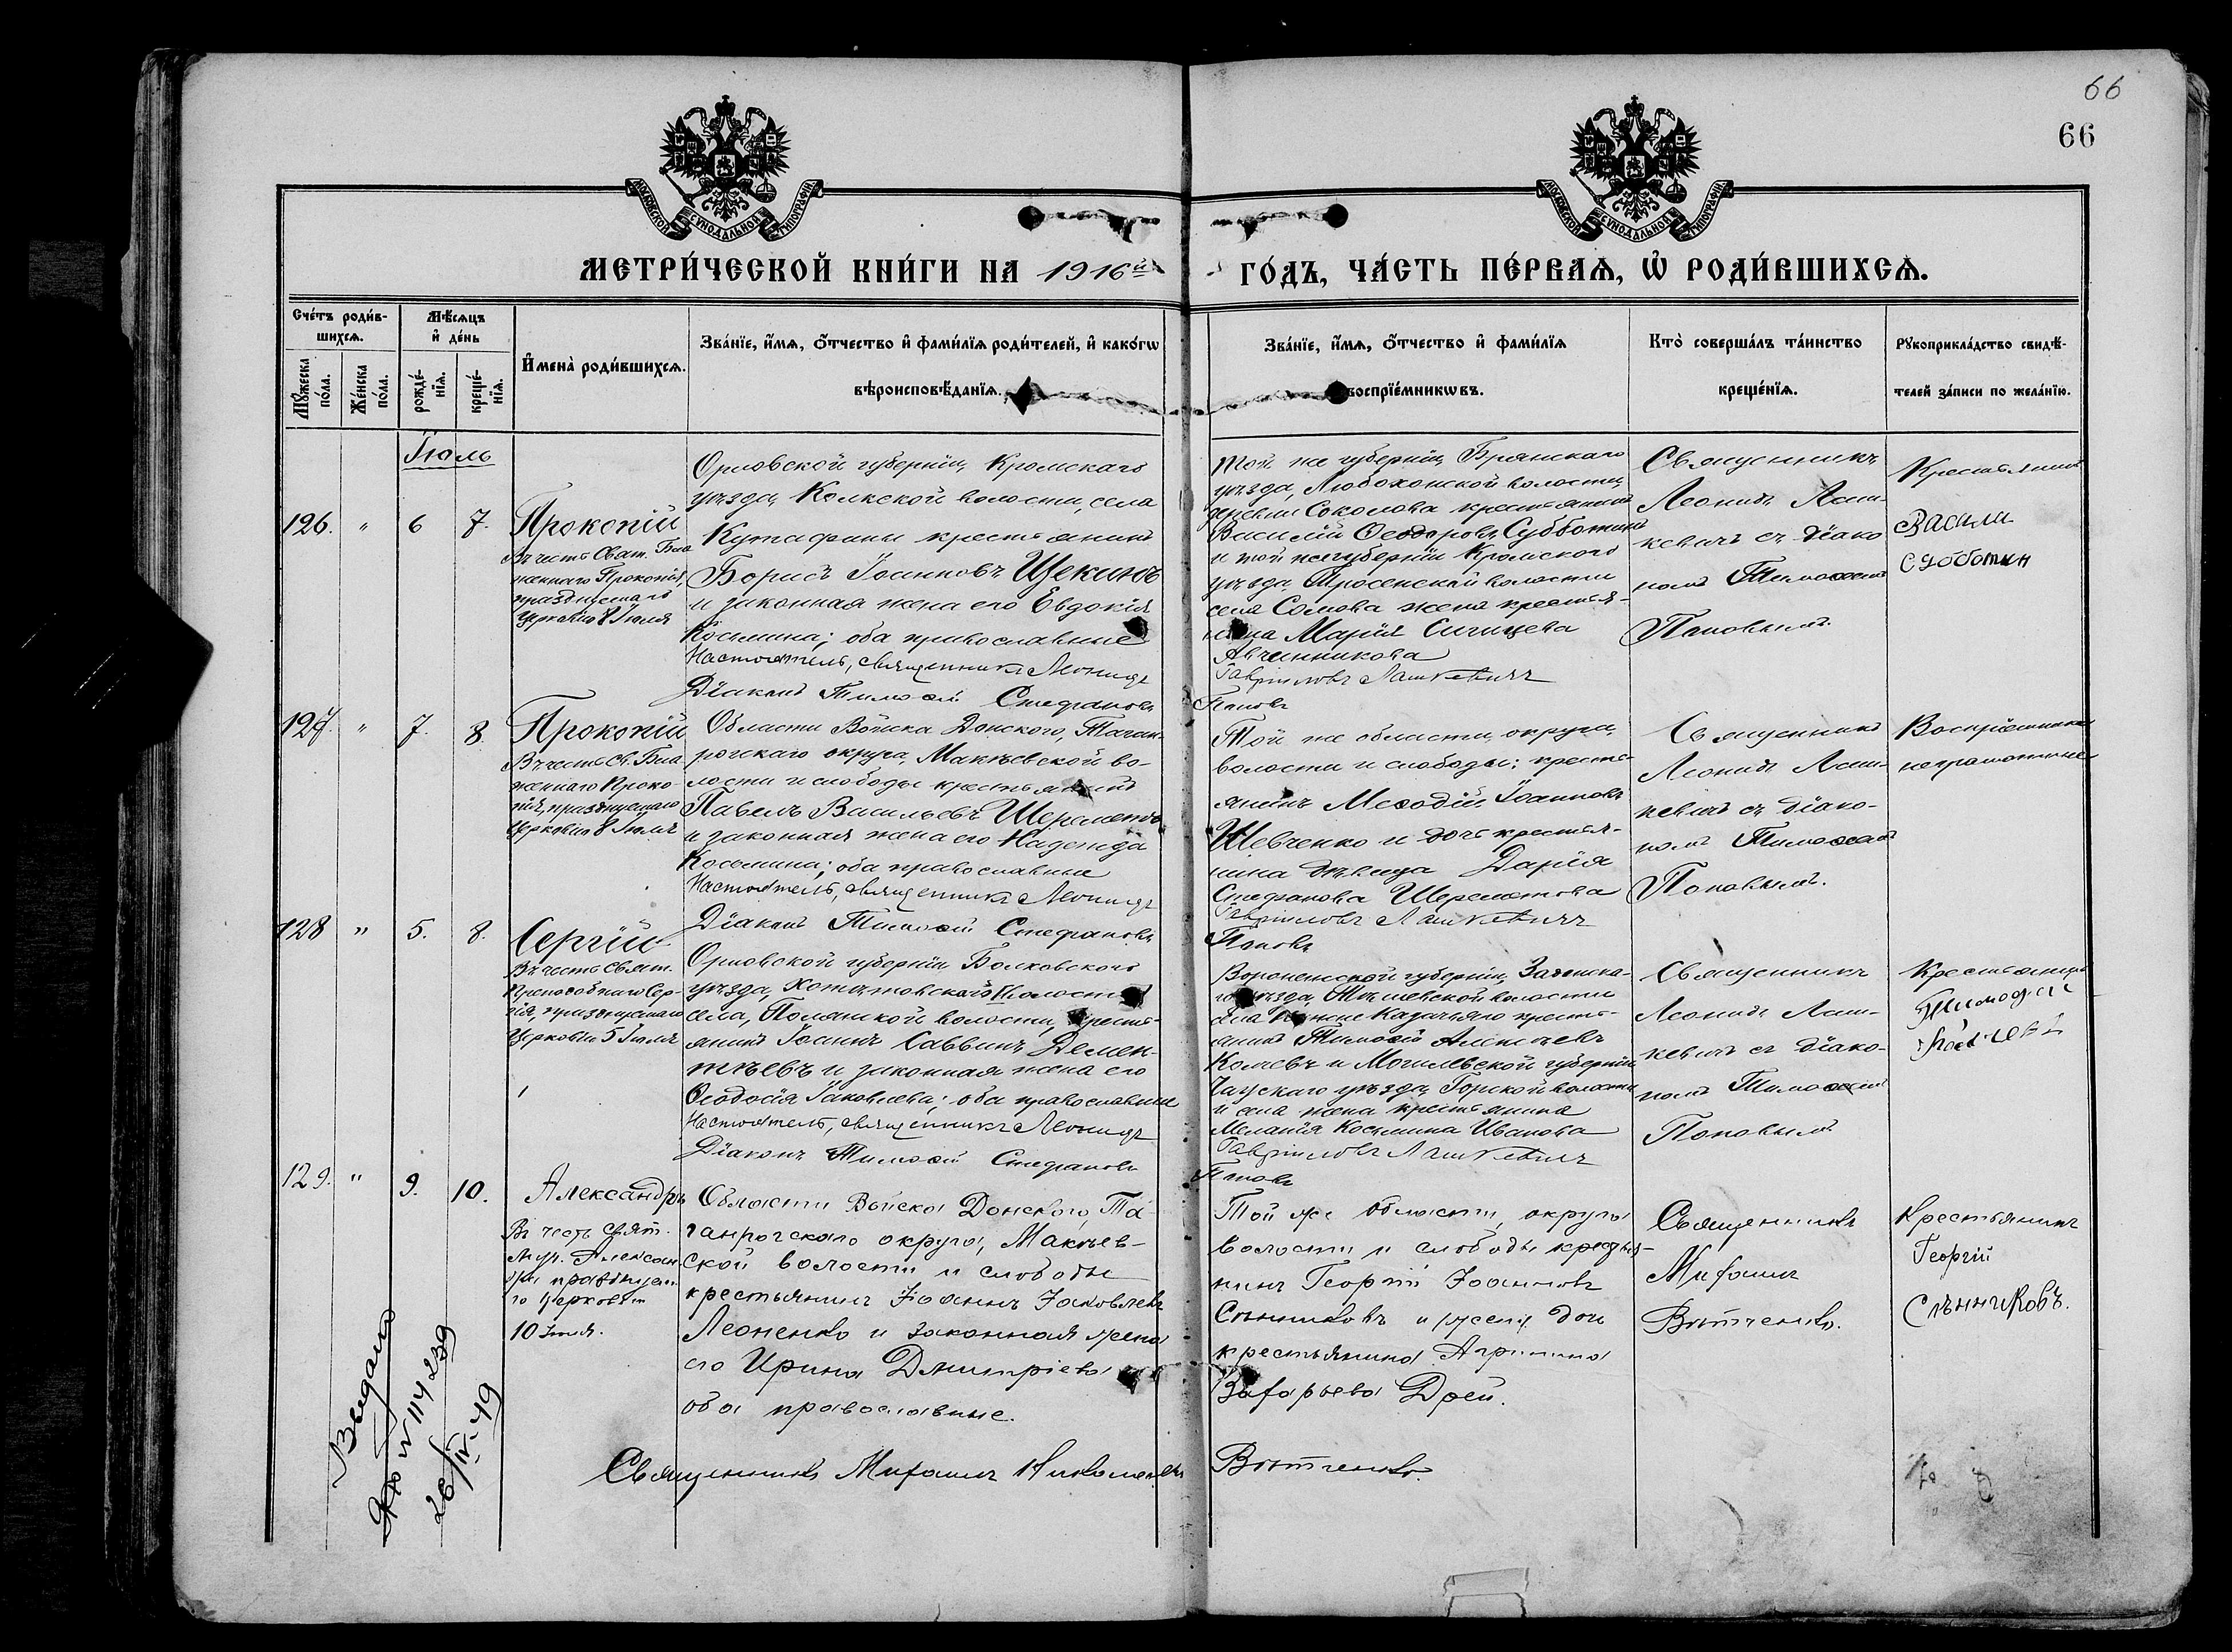 66
66
МОСКОВСКОЙ СУНОДАЛЬНОЙ ТИПОГРАФІИ
МОСКОВСКОЙ СУНОДАЛЬНОЙ ТИПОГРАФІИ
МЕТРИ́ЧЕСКОЙ КНИ́ГИ НА 1916й ГО́ДЪ, ЧА́СТЬ ПЕ́РВАѦ, Ѡ҆ РОДИ́ВШИХСѦ.
Сче́тъ роди́в-
шихсѧ.
Мꙋ́жеска по́ла.
Же́нска по́ла.
Мѣ́сѧцъ
и҆ де́нь
рожде́-
нїѧ.
креще́-
нїѧ.
И҆мена̀ роди́вшихсѧ.
Зва́нїе, и҆́мѧ, о҆́тчество и҆ фами́лїѧ роди́телей, и҆ како́гѡ
вѣроисповѣ́данїѧ.
Зва́нїе, и҆́мѧ, о҆́тчество и҆ фами́лїѧ
воспрїе́мникѡвъ.
Кто̀ соверша́лъ та́инство
креще́нїѧ.
Рꙋкоприкла́дство свидѣ́-
телей за́писи по жела́нїю.
Іюль
126. " 6 7.
Прокопій
Въ честь Свят. Бла
женнаго Прокопія,
празднуемаго
Церковію 8 Іюля
Орловской губерніи, Кромскаго
уѣзда, Колкской волости, села
Кутафины крестьянинъ
Борисъ Іоанновъ Щекинъ
и законная жена его Евдокія
Косьмина; оба православные
Настоятель, священникъ Леонидъ
Діаконъ Тимоѳей Стефановъ
Той же губерніи, Брянскаго
уѣзда, Любохонской волости,
деревни Соколова крестьянинъ
Василій Ѳеодоровъ Субботинъ
и той же губерніи Кромскаго
уѣзда, Тросенской волости
села Сомова жена крестья-
нина Марія
Авчинникова
Гавріиловъ Лашкевичъ
Поповъ
Священникъ
Леонидъ Лаш-
кевичъ съ діако
номъ Тимоѳеемъ
Поповымъ.
Крестьянинъ
Васили
Субботин
127. " 7. 8.
Прокопій
Въ честь Св. Бла
женнаго Проко-
пія, празднуемаго
Церковію 8 Іюля
Области Войска Донского, Таган-
рогскаго округа, Макѣевской во-
лости и слободы крестьянинъ
Павелъ Васильевъ Шереметовъ
и законная жена его Надежда
Косьмина; оба православные
Настоятель, священникъ Леонидъ
Діаконъ Тимоѳей Стефановъ
Той же области, округа,
волости и слободы: кресть-
янинъ Меѳодій Іоанновъ
Шевченко и дочь крестья-
нина дѣвица Дарія
Стефанова Шереметова
Гавріиловъ Лашкевичъ
Поповъ
Священникъ
Леонидъ Лаш-
кевичъ съ діако-
номъ Тимоѳеемъ
Поповымъ.
Воспріемники
неграмотные
128 " 5. 8.
Сергій
Въ честь Свят.
Преподобнаго Сер-
гія, празднуемаго
Церковію 5 Іюля
Орловской губерніи Болховского
уѣзда, волости
села, волости, кресть-
янинъ Іоаннъ Саввинъ Демен-
тьевъ и законная жена его
Ѳеодосія Іаковлева; оба православные
Настоятель, священникъ Леонидъ
Діаконъ Тимоѳей Стефановъ
Воронежской губерніи,
уѣзда, волости
села кресть-
янинъ Тимоѳей Алексѣевъ
и Могилевской губерніи,
Чаусскаго уѣзда, Горской волости
и села жена крестьянина
Меланія Косьмина Иванова
Гавріиловъ Лашкевичъ
Поповъ
Священникъ
Леонидъ Лаш-
кевичъ съ діако-
номъ Тимоѳеемъ
Поповымъ
Крестьянинъ
Тимофей
129. " 9. 10.
Александръ
Въ честь Свят.
муч. Алексан-
дра празднуема-
го Церковью
10 Іюля.
Области Войска Донского, Та-
ганрогскаго округа, Макѣев-
ской волости и слободы
крестьянинъ Іоаннъ Іаковлевъ
Леоненко и законная жена
его Ирина Димитріева
оба православные.
Священникъ Михаилъ Николаевъ
Той же области, округа
волости и слободы крестья-
нинъ Георгій Іоанновъ
Сѣнниковъ и
крестьянина Агрипина
Захарьева
Вотченко.
Священникъ
Михаилъ
Вотченко.
Крестьянинъ
Георгій
Сѣнниковъ.
Выдано
№ 114239
26/IV-49